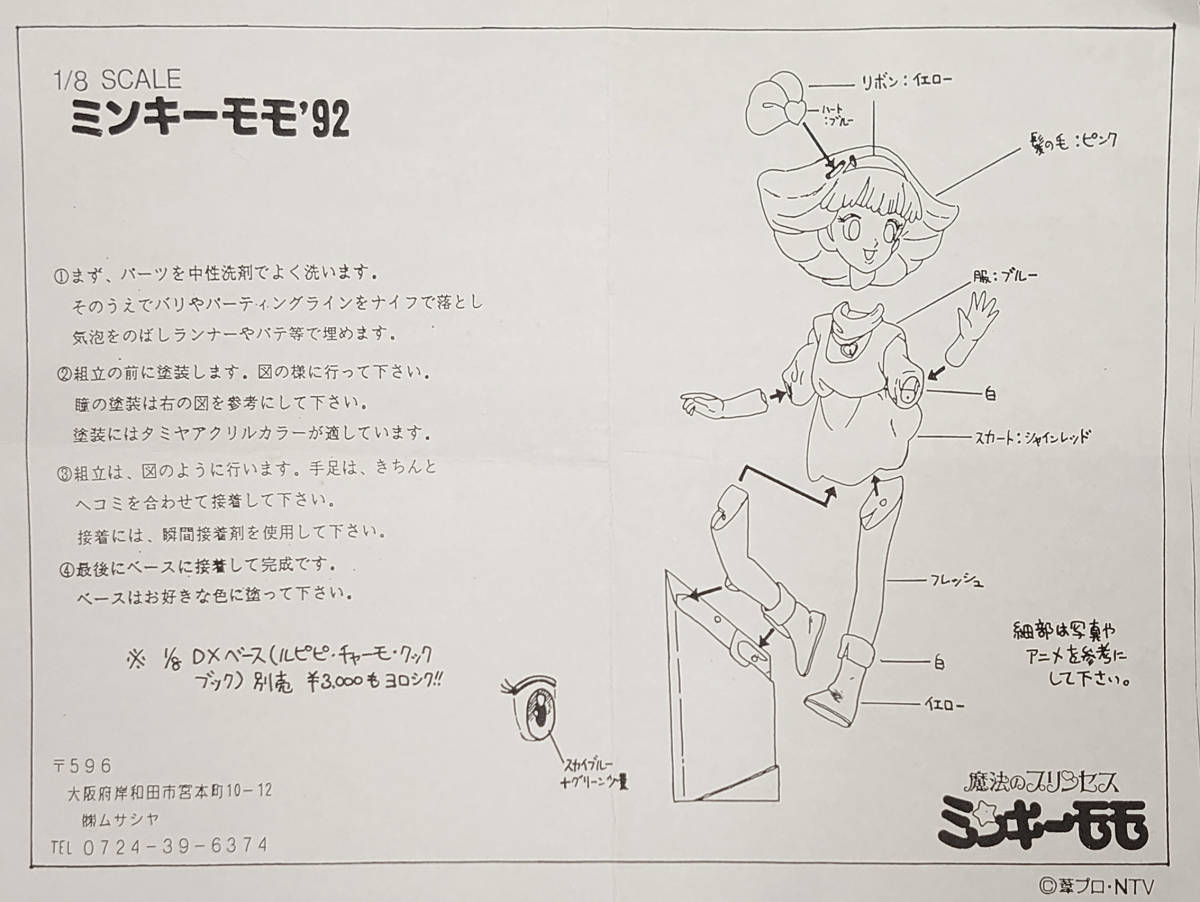 1/8 SCALE
ミンキーモモ'92
①まず、パーツを中性洗剤でよく洗います。
そのうえでバリやパーティングラインをナイフで落とし
気泡をのばしランナーやパテ等で埋めます。
②組立の前に塗装します。図の様に行って下さい。
瞳の塗装は右の図を参考にして下さい。
塗装にはタミヤアクリルカラーが適しています。
③組立は、図のように行います。手足は、きちんと
ヘコミを合わせて接着して下さい。
接着には、瞬間接着剤を使用して下さい。
④最後にベースに接着して完成です。
ベースはお好きな色に塗って下さい。
※ 1/8 DXベース(ルピピ・チャーモ・クック
ブック) 別売 ¥3,000もヨロシク!!
〒596
大阪府岸和田市宮本町10-12
㈱ムサシヤ
TEL 0724-39-6374
リボン:イエロー
ハート
:ブルー
髪の毛:ピンク
服:ブルー
白
スカート:シャインレッド
フレッシュ
白
イエロー
細部は写真や
アニメを参考に
して下さい。
スカイブルー
+グリーン少量
魔法のプリンセス
ミンキーモモ
©葦プロ・NTV